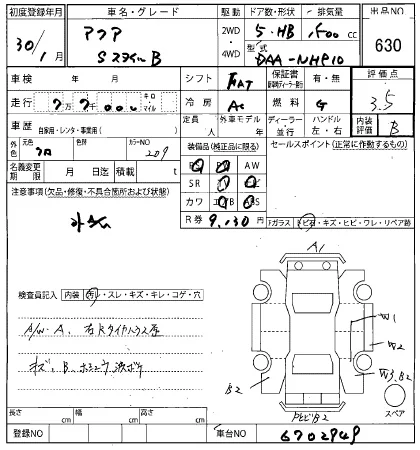 初度登録年月 車名・グレード 駆動 ドア数・形状 排気量 出品NO
30/1月 アクア Sスタイル B 2WD 4WD 5・HB 1500cc 630
型式 DAA-NHP10
車検 年 月 シフト FAT 保証書 有・無 評価点
走行 7万7千000 キロ マイル 冷房 AC 燃料 G 3.5
車歴 自家用・レンタ・事業用( ) 定員 人 外車モデル 年 ディーラー 並行 ハンドル 左・右 内装評価 B
外色 元色 クロ 色替 カラーNO 209 装備品(純正品に限る) セールスポイント(正常に作動するもの)
PS AW
名義変更期限 月 日迄 積載 t SR
注意事項(欠品・修復・不具合箇所および状態) カワ
R券 9,130円
Fガラス トビ石・キズ・ヒビ・ワレ・リペア跡
検査員記入 内装 汚レ・スレ・キズ・キレ・コゲ・穴
A/W・A、
キズ、B、
A1
W1
W2
W3,B2
B2
スペア
長さ cm 幅 cm 高さ cm
登録NO 車台NO 6702949